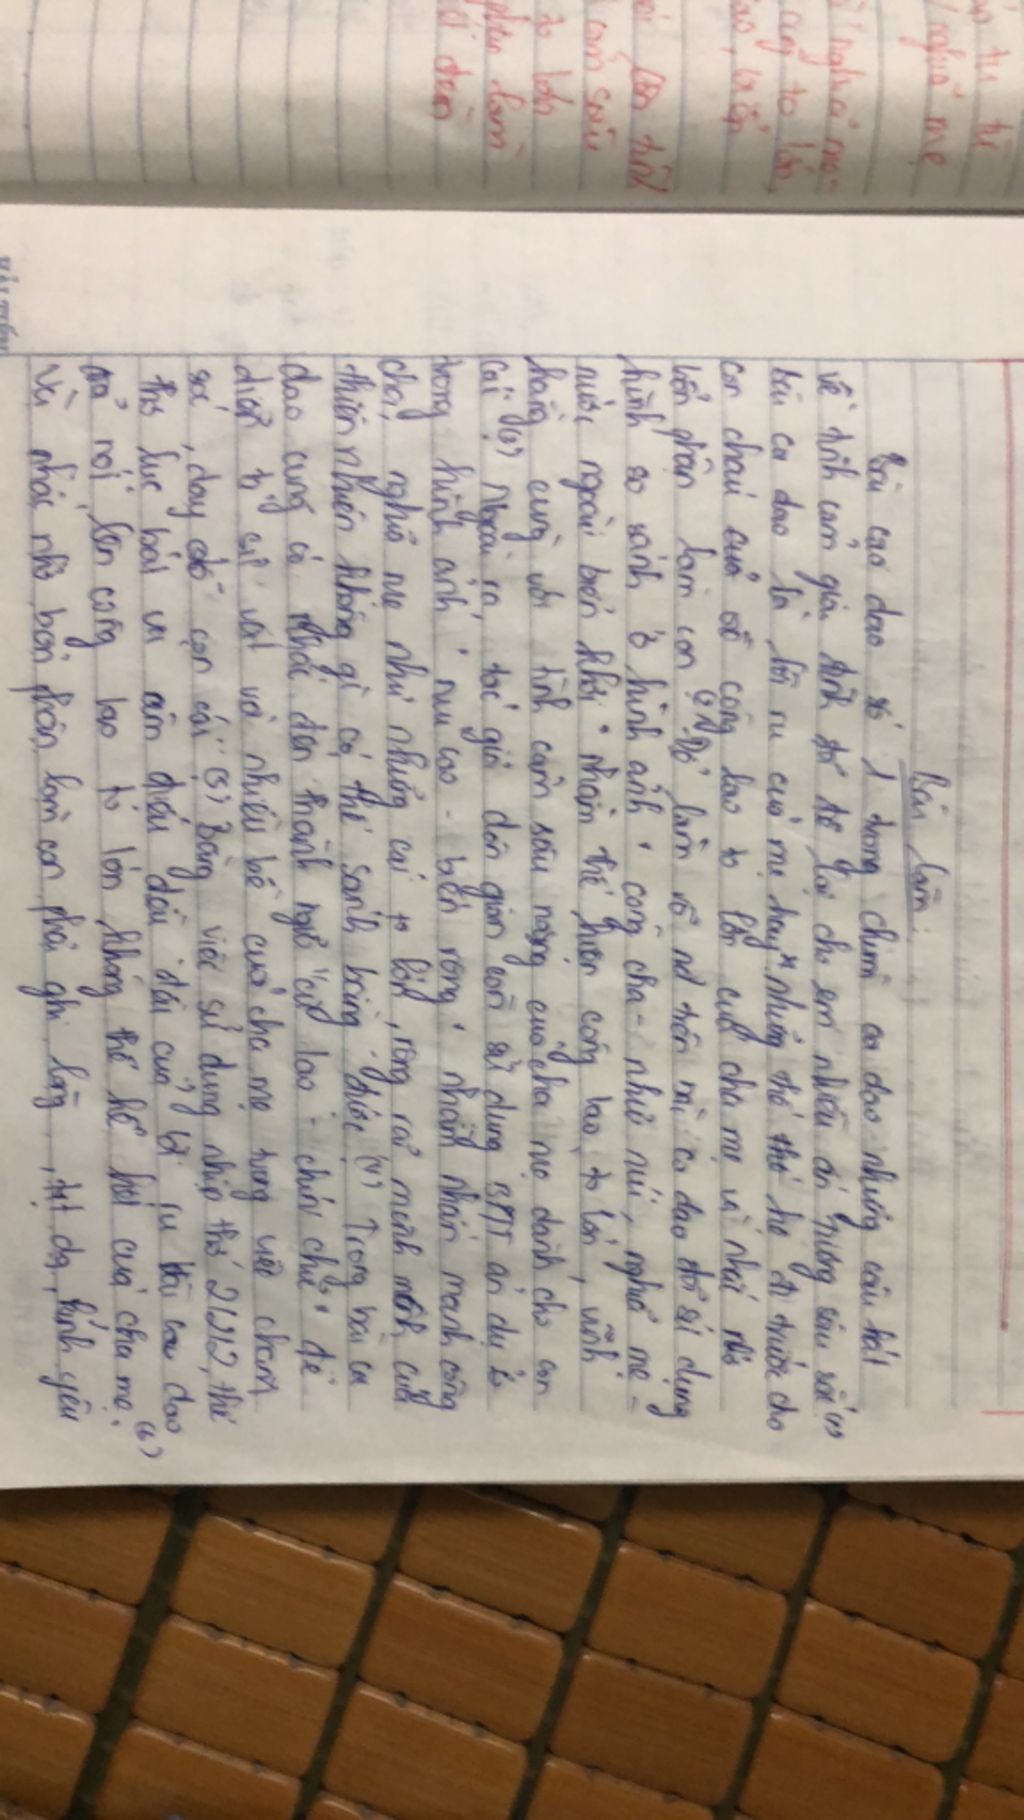 Bài làm:
Bài cao dao số 1 trong chùm ca dao những câu hát
về tình cảm gia đình đã để lại cho em nhiều ấn tượng sâu sắc (1)
Bài ca dao là lời ru của mẹ hay những thế thế hệ đi trước cho
con cháu của về công lao to lớn của cha mẹ và nhắc nhở
bổn phận làm con (2) Để làm rõ nd trên mà ca dao đã sử dụng
hình so sánh ở hình ảnh " công cha - như núi, nghĩa mẹ -
nước ngoài biển khơi " nhằm thể hiện công lao to lớn, vĩnh
hằng cùng với tình cảm sâu nặng của cha mẹ dành cho con
cái (3) Ngoài ra, tác giả dân gian còn sử dụng BPTT ẩn dụ ở
trong hình ảnh " núi cao - biển rộng " nhằm nhấn mạnh công
cha, nghĩa mẹ như những cái to lớn, rộng rã mênh mông của
thiên nhiên không gì có thể sánh bằng được (4) Trong bài ca
dao cũng có nhắc đến thành ngữ "cù lao - chín chữ" để
diễn tả sự vất vả nhiều bề của cha mẹ trong việc chăm
sóc, dạy dỗ con cái (5) Bằng việc sử dụng nhịp thơ 2222, thể
thơ lục bát và âm điệu dài dài của lời ru bài cao dao
đã nói lên công lao to lớn không thể kể hết của cha mẹ. (6)
Và nhắc nhở bổn phận làm con phải ghi lòng, tạc dạ, kính yêu